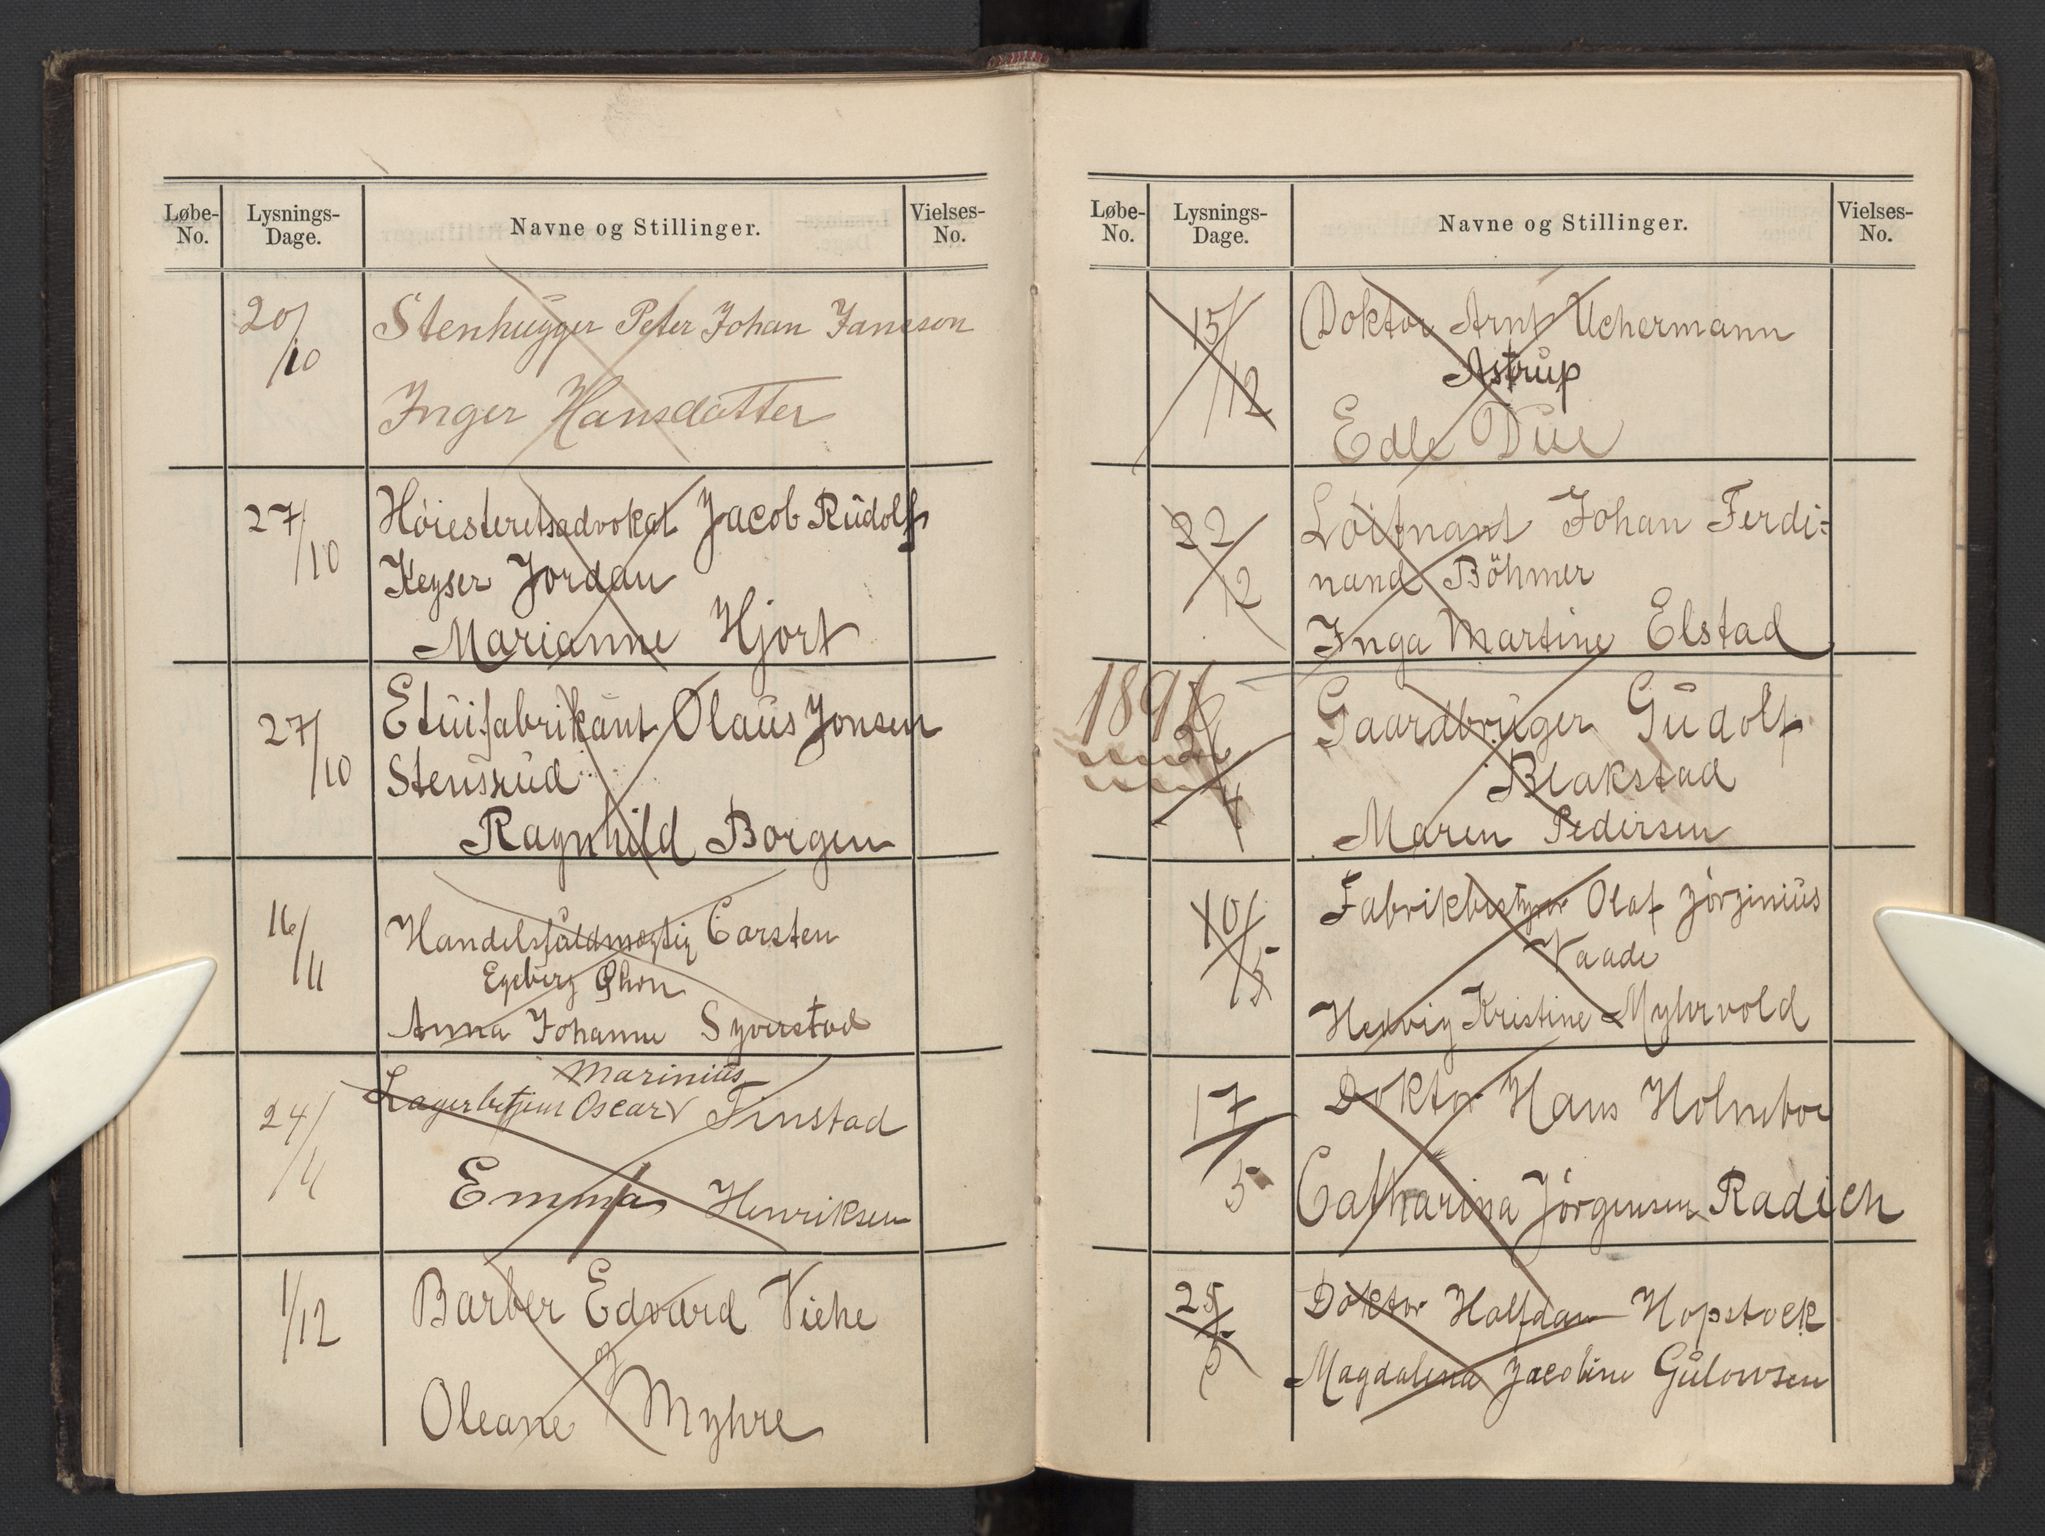 Løbe-No. Lysnings-Dage. Navne og Stillinger. Vielses-No.
20/10 Stenhugger Peter Johan Jansson
Inger Hansdatter
27/10 Høiesteretsadvokat Jacob Rudolf
Keyser Jordan
Marianne Hjort
27/10 Etuifabrikant Olaus Jonsen
Stensrud
Ragnhild Borgen
16/11 Handelsfuldmægtig Carsten
Egeberg
Anna Johanne Syverstad
Marinius
24/11 Lagerbetjent Oscar Finstad
Emma Henriksen
1/12 Barber Edvard Viehe
Oleane Myhre
Løbe-No. Lysnings-Dage. Navne og Stillinger. Vielses-No.
15/12 Doktor Arnt Uchermann
Astrup
Edle Due
22/12 Løitnant Johan Ferdi-
nand Böhmer
Inga Martine Elstad
1891
Gaardbruger Gudolf
Blakstad
4 Maren Pedersen
10/5 Fabrikbestyrer Olaf Jørginius
Vaade
Hedvig Kristine Myhrvold
17/5 Doktor Hans Holmboe
Catharina Jørgensen Radich
25/5 Doktor Halfdan Hopstock
Magdalena Jacobine Gulowsen